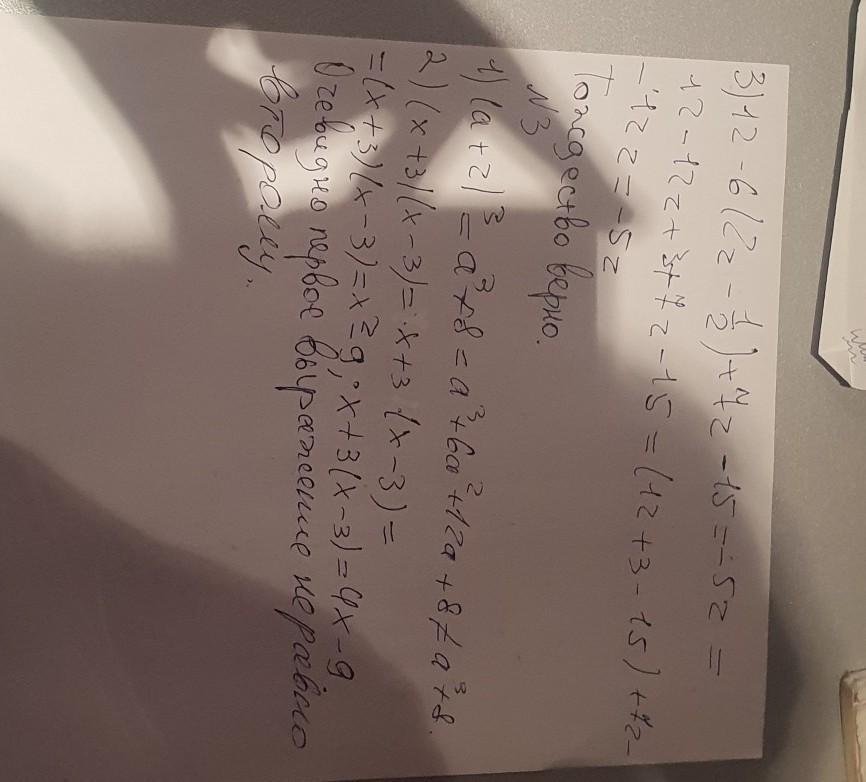 3) 12 - 6(2z - 1/2) + 7z - 15 = -5z =
12 - 12z + 3 + 7z - 15 = (12 + 3 - 15) + 7z -
- 12z = -5z
Тождество верно.
N3
1) (a + 2)³ = a³ + 8 = a³ + 6a² + 12a + 8 ≠ a³ + 8.
2) (x + 3)(x - 3) = x + 3 (x - 3) =
= (x + 3)(x - 3) = x² - 9; x + 3(x - 3) = 4x - 9
Очевидно первое выражение неравно
второму.